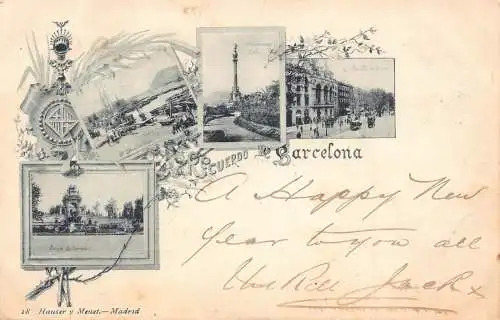 Recuerdo de Barcelona
A Happy New
Year to you all
Jack x
28 Hauser y Menet.—Madrid